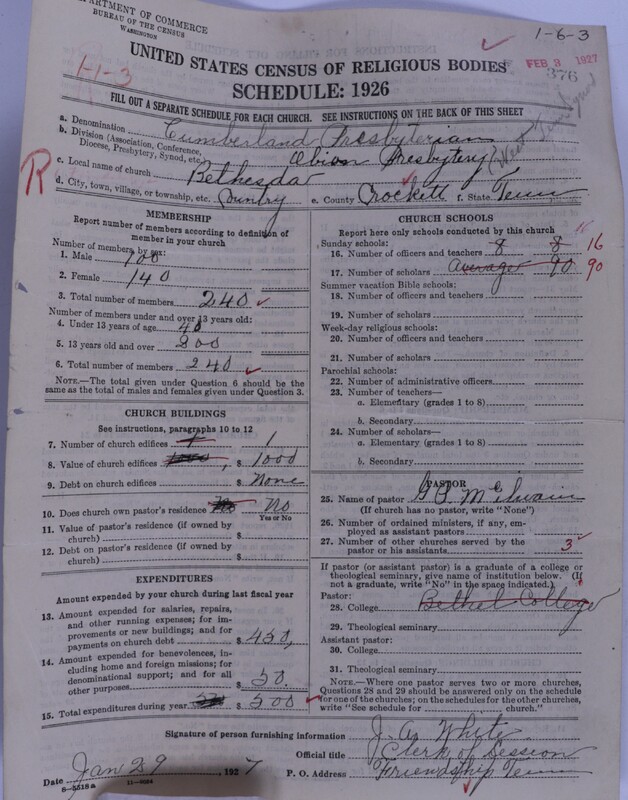 DEPARTMENT OF COMMERCE
BUREAU OF THE CENSUS
WASHINGTON
1-6-3
FEB 3 1927
376
1-1-3
UNITED STATES CENSUS OF RELIGIOUS BODIES
SCHEDULE: 1926
FILL OUT A SEPARATE SCHEDULE FOR EACH CHURCH. SEE INSTRUCTIONS ON THE BACK OF THIS SHEET
a. Denomination Cumberland Presbyterian
b. Division (Association, Conference, Diocese, Presbytery, Synod, etc.) Obion Presbytery (West Tenn Synod
c. Local name of church Bethesda
R
d. City, town, village, or township, etc. Country e. County Crockett f. State Tenn
MEMBERSHIP
Report number of members according to definition of member in your church
Number of members by sex:
1. Male 100
2. Female 140
3. Total number of members 240
Number of members under and over 13 years old:
4. Under 13 years of age 40
5. 13 years old and over 200
6. Total number of members 240
NOTE.—The total given under Question 6 should be the same as the total of males and females given under Question 3.
CHURCH BUILDINGS
See instructions, paragraphs 10 to 12
7. Number of church edifices 1 1
8. Value of church edifices 1000, $ 1000
9. Debt on church edifices $ None
10. Does church own pastor's residence No No
Yes or No
11. Value of pastor's residence (if owned by church) $
12. Debt on pastor's residence (if owned by church) $
EXPENDITURES
Amount expended by your church during last fiscal year
13. Amount expended for salaries, repairs, and other running expenses; for improvements or new buildings; and for payments on church debt $ 450,
14. Amount expended for benevolences, including home and foreign missions; for denominational support; and for all other purposes $ 50.
15. Total expenditures during year $ 500
CHURCH SCHOOLS
Report here only schools conducted by this church
Sunday schools:
16. Number of officers and teachers 8 8 16
17. Number of scholars Average 90 90
Summer vacation Bible schools:
18. Number of officers and teachers
19. Number of scholars
Week-day religious schools:
20. Number of officers and teachers
21. Number of scholars
Parochial schools:
22. Number of administrative officers
23. Number of teachers—
a. Elementary (grades 1 to 8)
b. Secondary
24. Number of scholars—
a. Elementary (grades 1 to 8)
b. Secondary
PASTOR
25. Name of pastor G P. McElwain
(If church has no pastor, write "None")
26. Number of ordained ministers, if any, employed as assistant pastors
27. Number of other churches served by the pastor or his assistants 3
If pastor (or assistant pastor) is a graduate of a college or theological seminary, give name of institution below. (If not a graduate, write "No" in the space indicated.)
Pastor:
28. College Bethel College
29. Theological seminary
Assistant pastor:
30. College
31. Theological seminary
NOTE.—Where one pastor serves two or more churches, Questions 28 and 29 should be answered only on the schedule for one of the churches; on the schedules for the other churches, write "See schedule for church."
Signature of person furnishing information J. A. White
Official title Clerk of Session
Date Jan 29, 1927 P. O. Address Friendship Tenn
8-5518a 11-9064